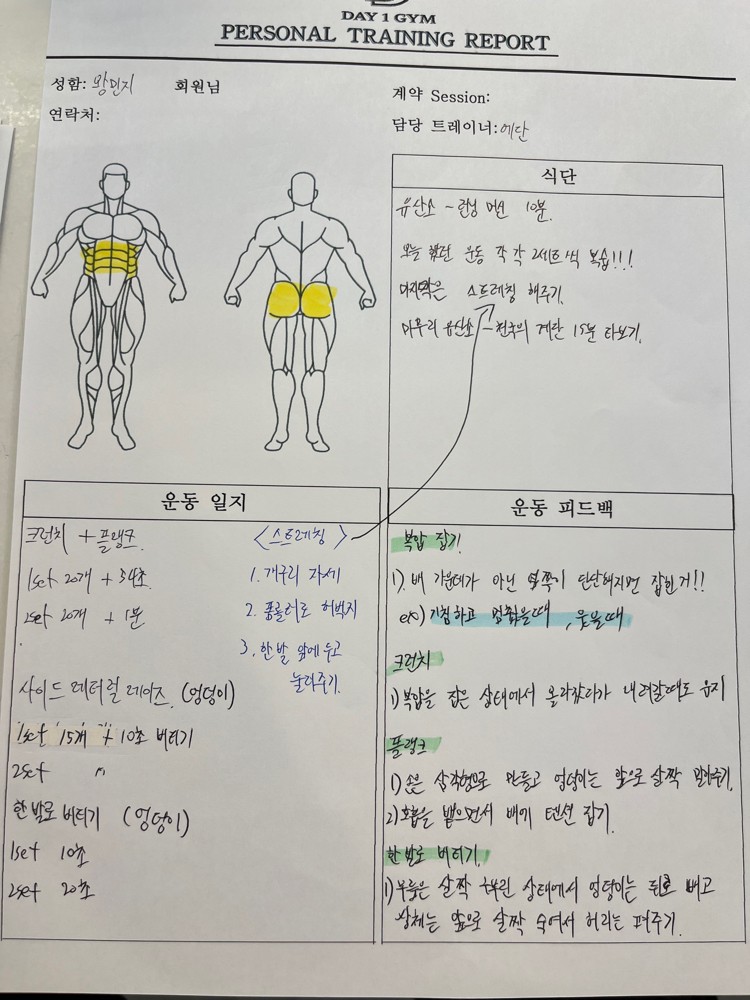 DAY 1 GYM
PERSONAL TRAINING REPORT
성함: 왕민지 회원님
연락처:
계약 Session:
담당 트레이너: 에단
식단
유산소 - 런닝 머신 10분.
오늘 했던 운동 각 각 2세트씩 복습!!!
마지막은 스트레칭 해주기.
마무리 유산소 - 천국의 계단 15분 타보기.
운동 일지
크런치 + 플랭크.
1set 20개 + 34초.
2set 20개 + 1분
사이드 레터럴 레이즈. (엉덩이)
1set 15개 + 10초 버티기
2set 〃
한 발로 버티기 (엉덩이)
1set 10초
2set 20초
<스트레칭>
1. 개구리 자세
2. 폼롤러로 허벅지
3. 한 발 앞에 두고
눌러주기.
운동 피드백
복압 잡기.
1). 배 가운데가 아닌 옆쪽이 단단해지면 잡힌거!!
ex) 기침하고 멈췄을때, 웃을때
크런치
1) 복압을 잡은 상태에서 올라갔다가 내려갈때도 유지
플랭크
1) 손은 삼각형으로 만들고 엉덩이는 앞으로 살짝 말아주기.
2) 호흡을 뱉으면서 배에 텐션 잡기.
한 발로 버티기.
1) 무릎은 살짝 구부린 상태에서 엉덩이는 뒤로 빼고
상체는 앞으로 살짝 숙여서 허리는 펴주기.